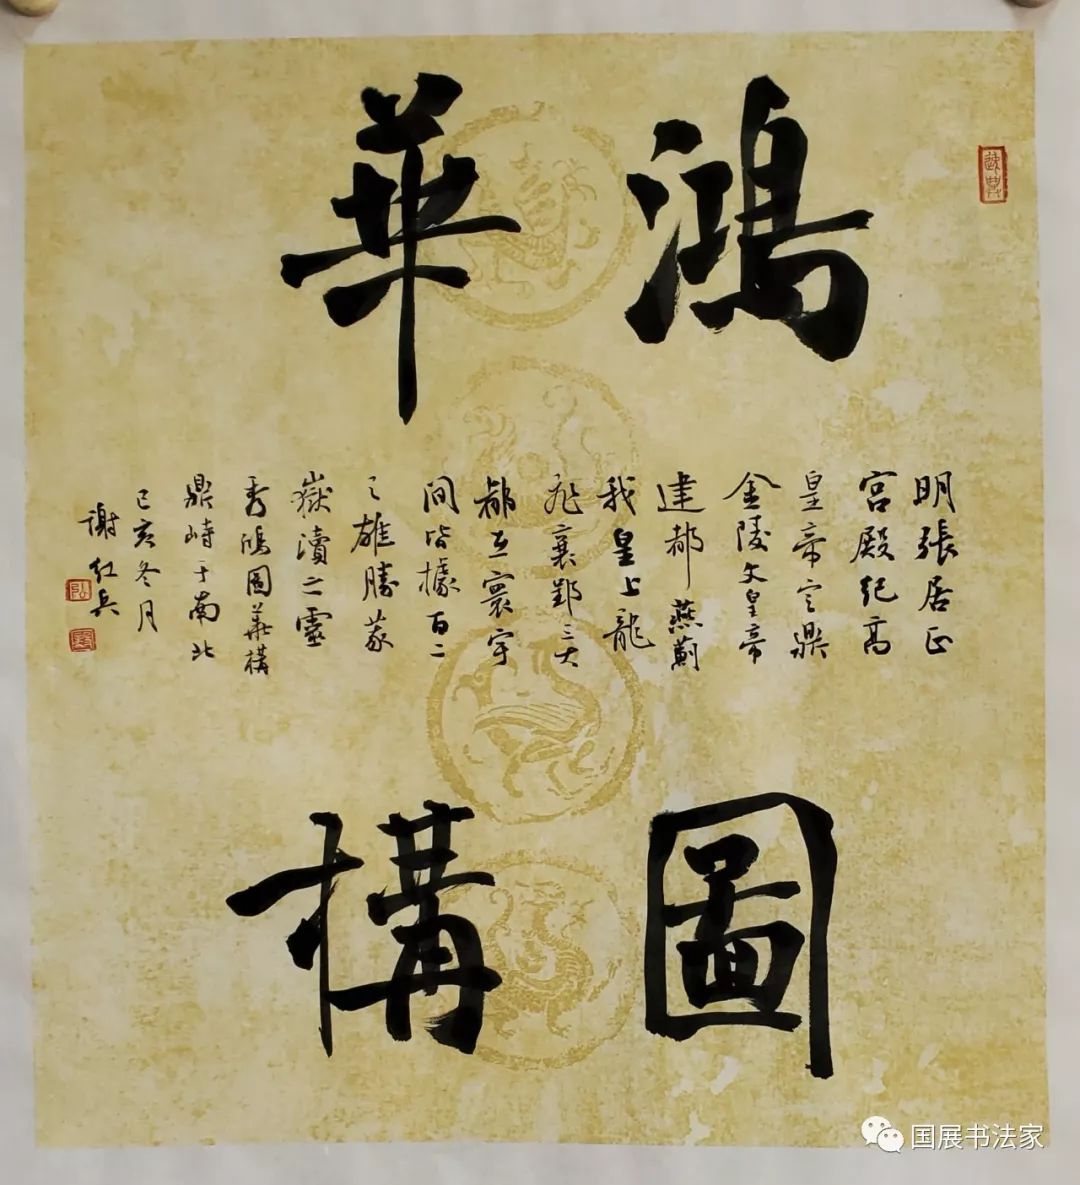 鴻圖
華構
明張居正
宮殿紀高
皇帝定鼎
金陵文皇帝
建都燕薊
我皇上龍
飛襄郢三大
都亙寰宇
間皆據百二
之雄勝蒙
嶽瀆之靈
秀鴻圖華構
鼎峙于南北
己亥冬月
謝紅兵
国展书法家